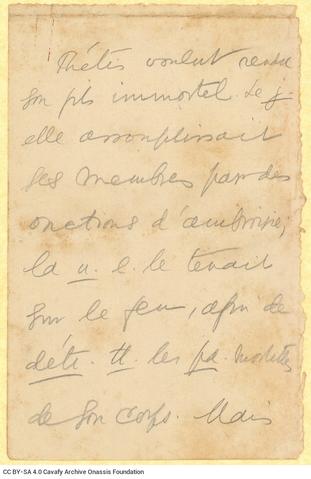 Thétis voulut rendre
son fils immortel. Le j.
elle assouplissait
ses membres par des
onctions d'ambroisie;
la n. e. le tenait
sur le feu, afin de
détr. tt. les pa. mortelles
de son corps. Mais
CC BY-SA 4.0 Cavafy Archive Onassis Foundation